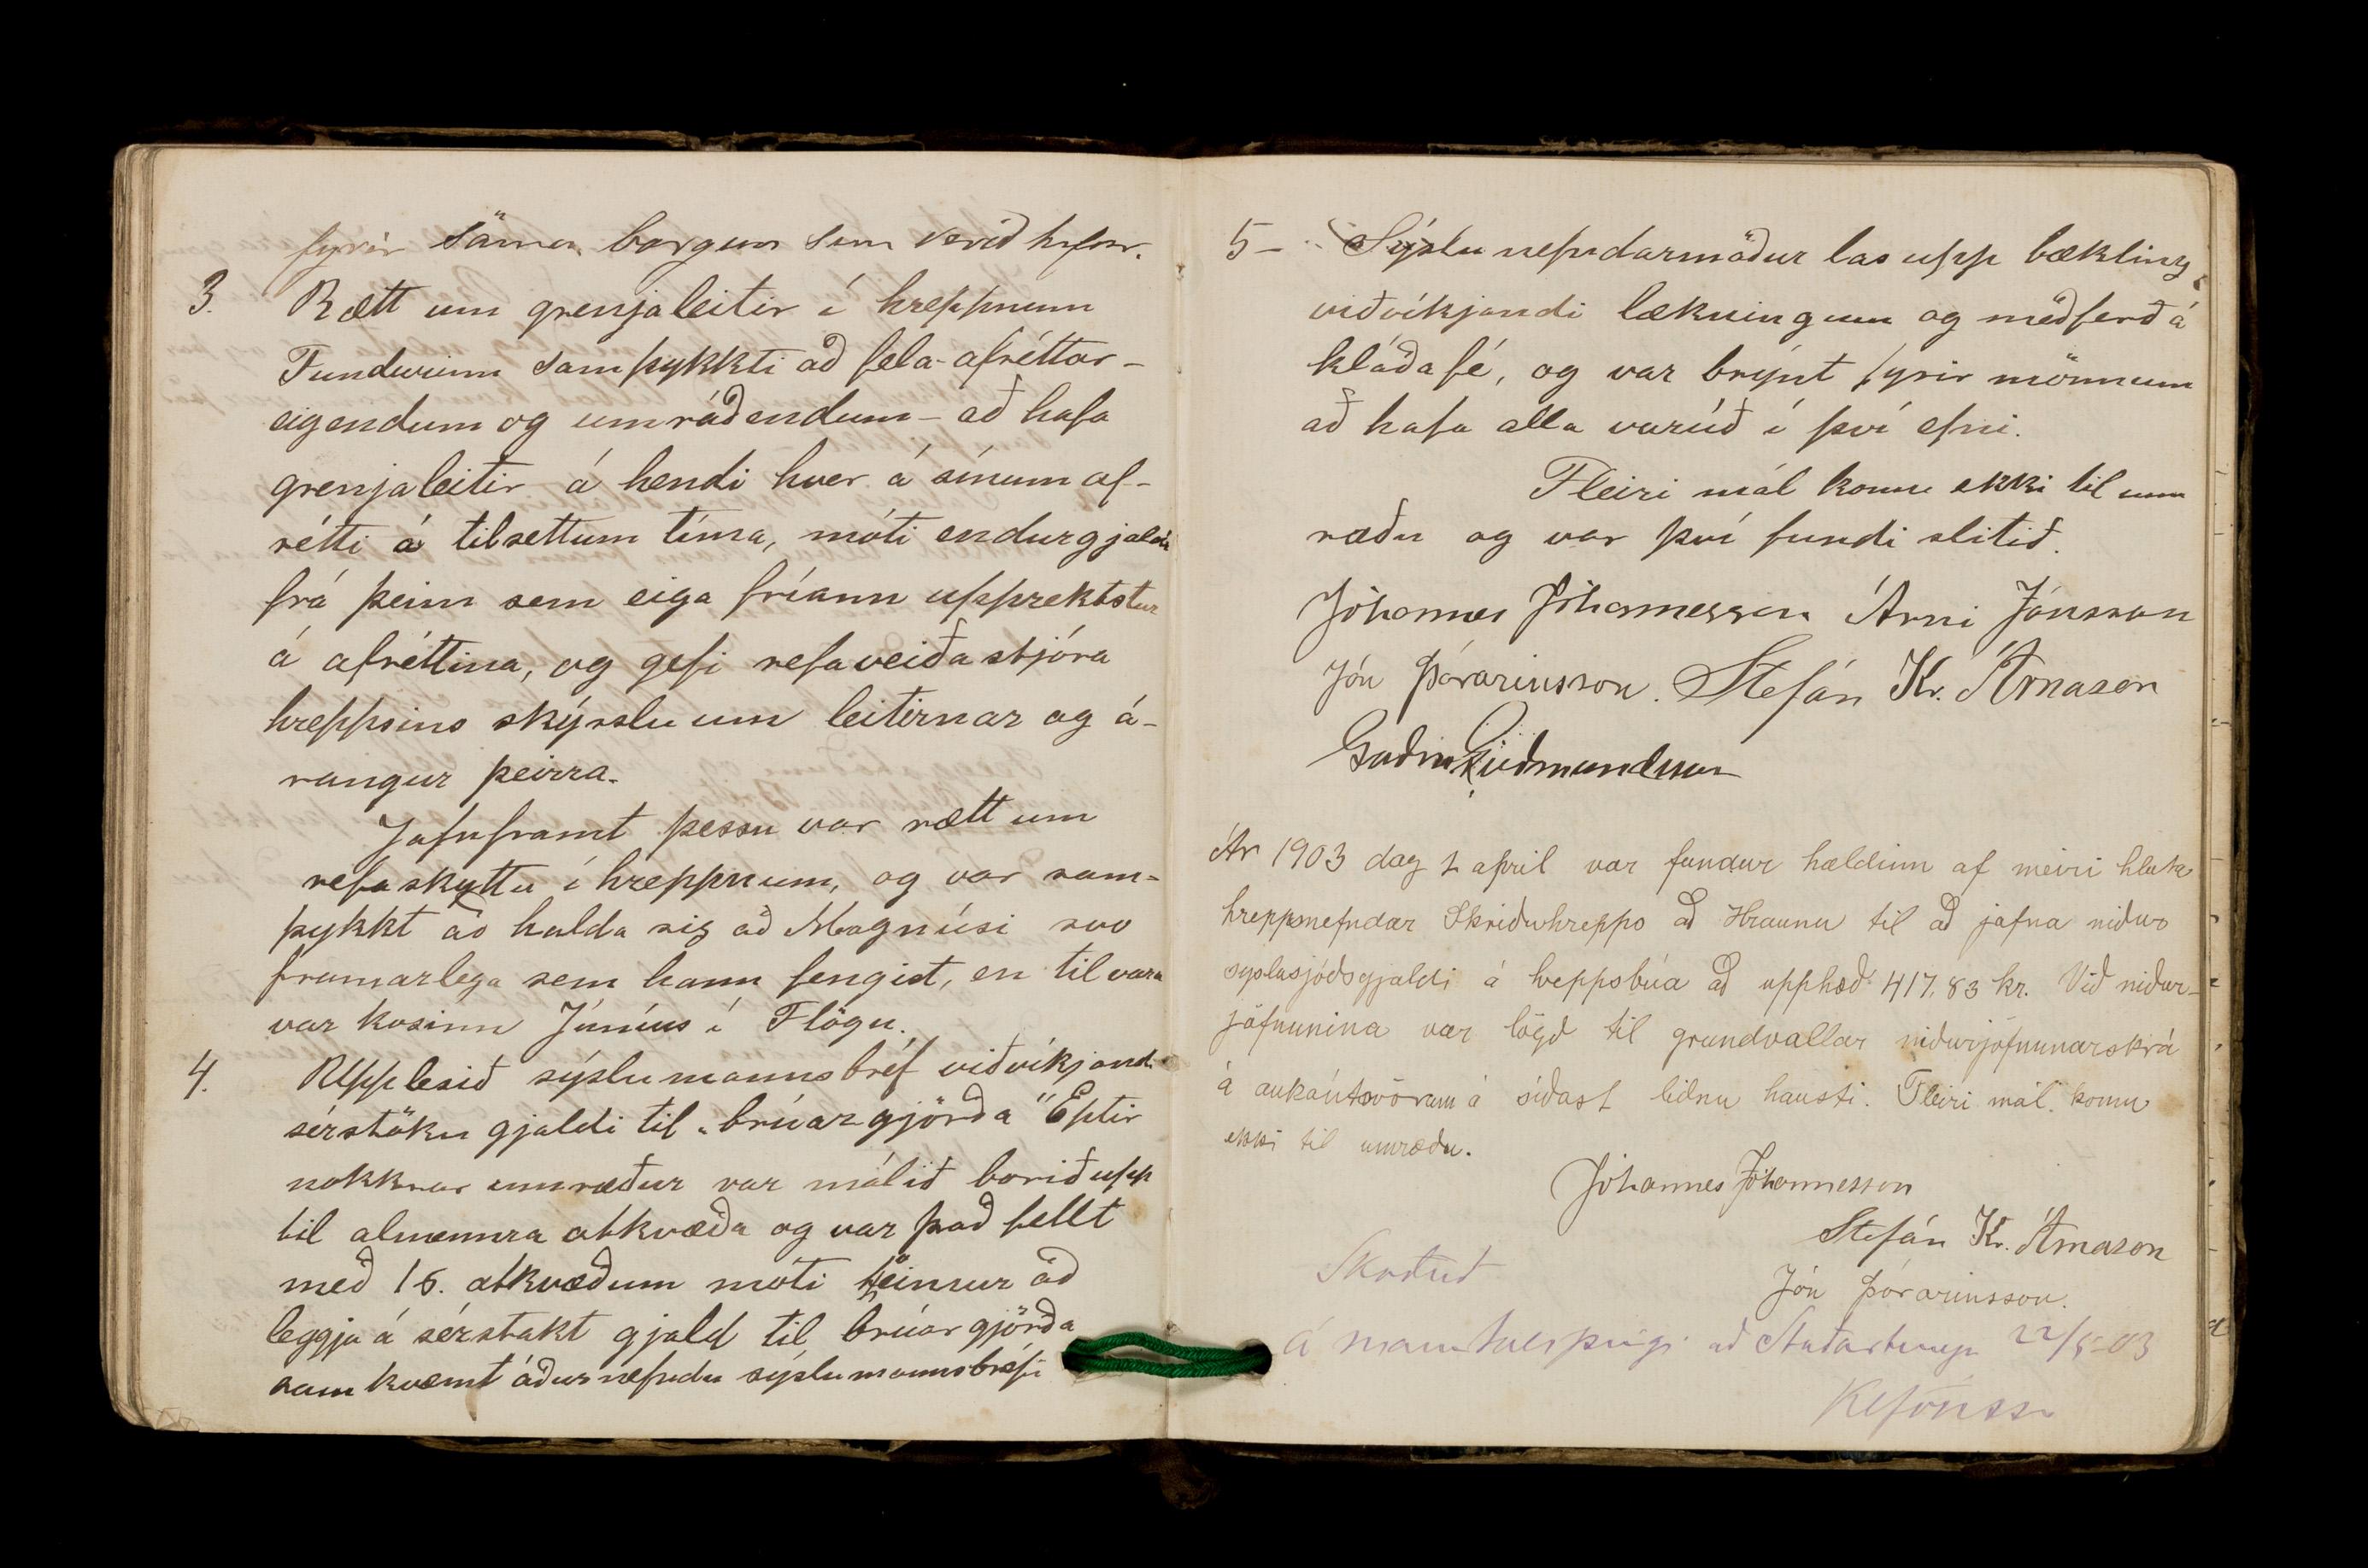 fyrir sömu borgun sem verið hefur.
3. Rætt um grenjaleitir í hreppnum
Fundurinn samþykkti að fela afréttar-
eigendum og umráðendum - að hafa
grenjaleitir á hendi hver á sínum af-
rétti á tilsettum tíma, móti endurgjaldi
frá þeim sem eiga fríann upprekstur
á afréttina, og gefi refaveiðastjóra
hreppsins skýrslu um leitirnar og á-
rangur þeirra.
Jafnframt þessu var rætt um
refaskyttu í hreppnum, og var sam-
þykkt að halda sig að Magnúsi svo
framarlega sem hann fengist, en til vara
var kosinn Júníus í Flögu.
4. Upplesið sýslumannsbréf viðvíkjandi
sérstöku gjaldi til „brúargjörða“ Eptir
nokkrar umræður var málið borið upp
til almennra atkvæða og var það fellt
með 16. atkvæðum móti einum að
leggja á sérstakt gjald til brúargjörða
samkvæmt áðurnefndu sýslumannsbréfi
5- Sýslunefndarmaður las upp bækling
viðvíkjandi lækningum og meðferð á
kláðafé, og var brýnt fyrir mönnum
að hafa alla varúð í því efni.
Fleiri mál komu ekki til um
ræðu og var því fundi slitið.
Jóhannes Jóhannesson Árni Jónsson
Jón Þórarinsson. Stefán Kr. Árnason
Guðm Guðmundsson
Ár 1903 dag 1 apríl var fundur haldinn af meiri hluta
hreppsnefndar Skriðuhrepps að Hraunu til að jafna niður
syslusjóðsgjaldi á hreppsbúa að upphæð 417,83 kr. Við niður-
jöfnunina var lögð til grundvallar niðurjöfnunarskrá
á aukaútsvörum á síðast liðnu hausti. Fleiri mál komu
ekki til umræðu.
Jóhannes Jóhannesson
Stefán Kr. Árnason
Jón Þórarinsson.
Skoðað
á manntalsþingi að Staðartungu 22/5-03
Kl Jónsson